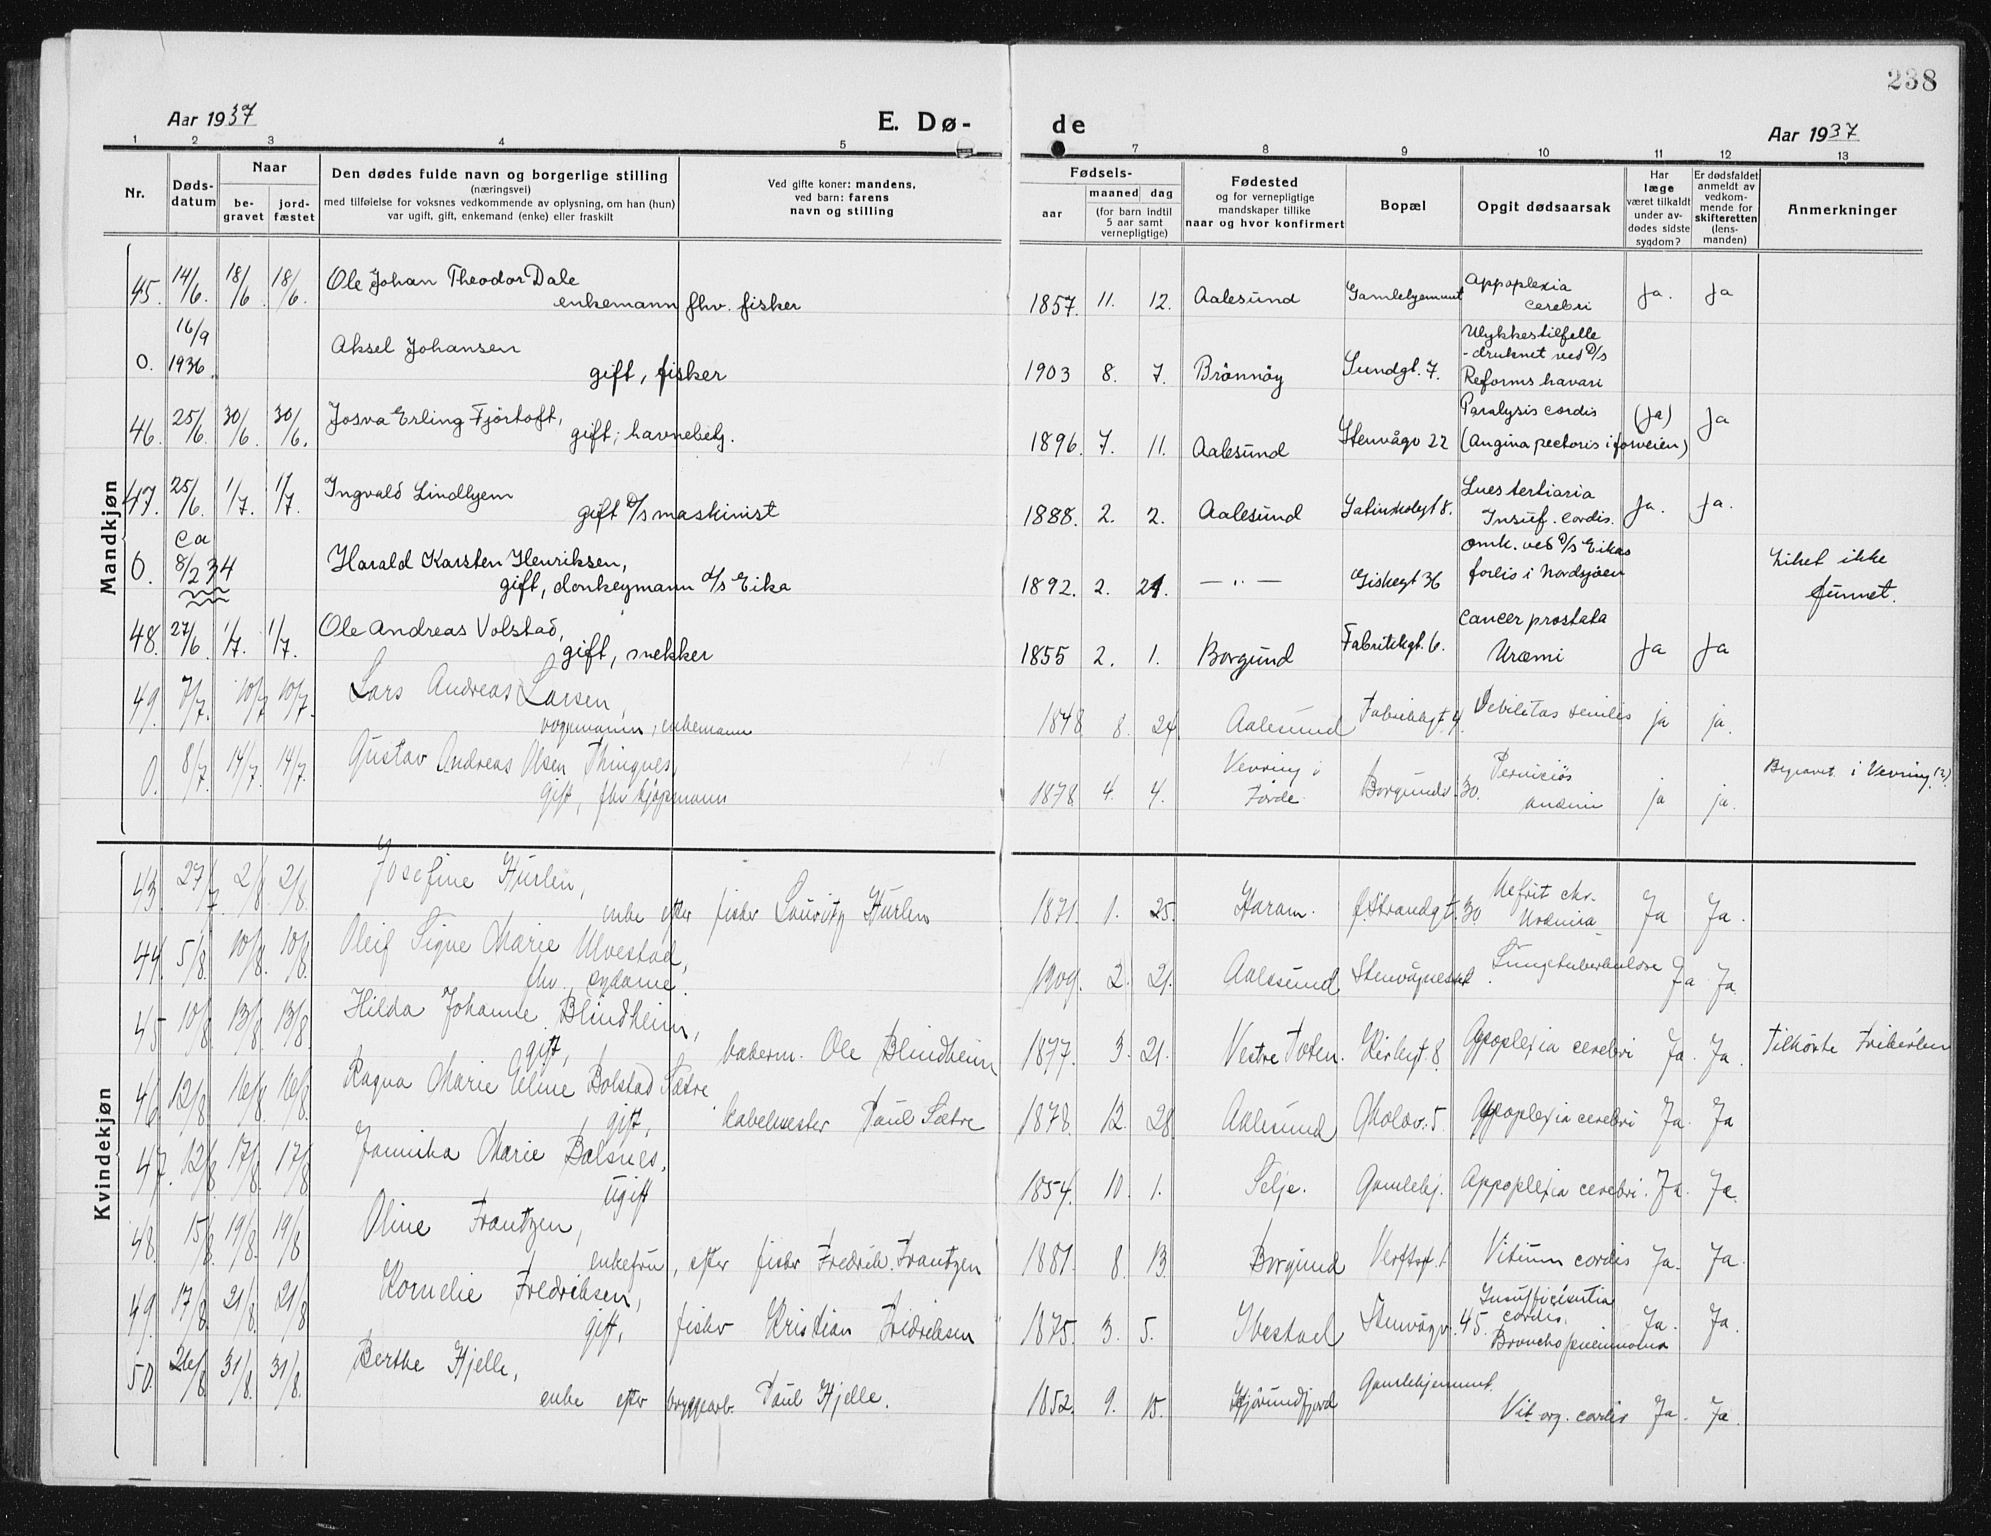 238
Aar 1937
E. Dø-
de
Aar 1937
1 2 3 4 5 7 8 9 10 11 12 13
Nr.
Døds-
datum
Naar
be-
gravet
jord-
fæstet
Den dødes fulde navn og borgerlige stilling
(næringsvei)
med tilføielse for voksnes vedkommende av oplysning, om han (hun)
var ugift, gift, enkemand (enke) eller fraskilt
Ved gifte koner: mandens,
ved barn: farens
navn og stilling
Fødsels-
aar
maaned dag
(for barn indtil
5 aar samt
vernepligtige)
Fødested
og for vernepligtige
mandskaper tillike
naar og hvor konfirmert
Bopæl
Opgit dødsaarsak
Har
læge
været tilkaldt
under av-
dødes sidste
sygdom?
Er dødsfaldet
anmeldt av
vedkom-
mende for
skifteretten
(lens-
manden)
Anmerkninger
Mandkjøn
45. 14/6. 18/6. 18/6. Ole Johan Theodor Dale
enkemann fhv. fisker
1857. 11. 12. Aalesund Gamlehjemmet Appoplexia
cerebri
Ja. Ja
0. 16/9
1936. Aksel Johansen
gift, fisker
1903 8. 7. Brönnöy Sundgt. 7. Ulykkestilfelle
- druknet ved D/s
Reforms havari
46. 25/6. 30/6. 30/6. Josva Erling Fjörtoft,
gift; havnebetj.
1896. 7. 11. Aalesund Stenvågv 22 Paralysis cordis
(Angina pectoris i forveien)
(Ja) Ja
47. 25/6. 1/7. 1/7. Ingvald Lindhjem
gift D/s maskinist
1888. 2. 2. Aalesund Latinskolegt 8. Lues tertiaria
Insuf. cordis.
Ja. Ja.
0. ca
8/2 34 Harald Karsten Henriksen,
gift, donkeymann d/s Eika
1892. 2. 21. — " — Giskegt 36 omk. ved D/s Eikas
forlis i Nordsjøen
Liket ikke
funnet.
48. 27/6. 1/7. 1/7. Ole Andreas Volstad,
gift, snekker
1855 2. 1. Borgund Fabrikkgt. 6. Cancer prostata
Uræmi
Ja Ja
49. 7/7. 10/7 10/7. Lars Andreas Larsen,
vognmann, enkemann
1848 8. 24. Aalesund Fabrikkgt. 4. Debilitas senilis ja ja.
0. 8/7. 14/7. 14/7. Gustav Andreas Olsen Thingnes,
gift, fhv kjøpmann
1878. 4. 4. Vevring i
Førde. Borgundv. 30. Perniciøs
anæmi
ja ja. Begravet i Vevring (?)
Kvindekjøn
43. 27/7. 2/8. 2/8. Josefine Hurlen,
enke efter fisker Lauritz Hurlen
1871. 1. 25. Haram. ø. Strandgt. 30 Nefrit chr.
Urämia
Ja Ja.
44. 5/8. 10/8. 10/8. Oleif Signe Marie Ulvestad,
fhv. sydame.
1909. 2. 21. Aalesund Stenvågneset Lungetuberkulose Ja Ja.
45 10/8. 13/8. 13/8. Hilda Johanne Blindheim,
gift, bøkerm. Ole Blindheim
1877. 3. 21. Vestre Toten. Kirkegt. 8. Appoplexia cerebri Ja. Ja. Tilhörte Frikirken
46. 12/8. 16/8. 16/8. Ragna Marie Eline Bolstad Sætre
gift, kabelmester Paul Sætre
1878. 12. 28. Aalesund Molov. 5. Appoplexia cerebri Ja. Ja
47. 12/8 17/8. 17/8. Jannika Marie Balsnes,
ugift
1854. 10. 1. Selje. Gamlehj. Appoplexia cerebri. Ja. Ja.
48. 15/8. 19/8. 19/8 Oline Frantzen,
enkefru, efter fisker Fredrik Frantzen
1881. 8. 13. Borgund Verftsgt. 1. Vitium cordis Ja. Ja.
49. 17/8. 21/8. 21/8 Kornelie Fredriksen,
gift, fisker Kristian Fredriksen
1875. 3. 5. Ibestad Stenvågv. 45. Insufficientia
cordis.
Bronchopneumonia
Ja. Ja.
50. 26/8. 31/8. 31/8. Berthe Hjelle,
enke efter bryggearb. Paul Hjelle.
1852. 9. 15. Hjörundfjord Gamlehjemmet.
Vit. org. cordis Ja. Ja.